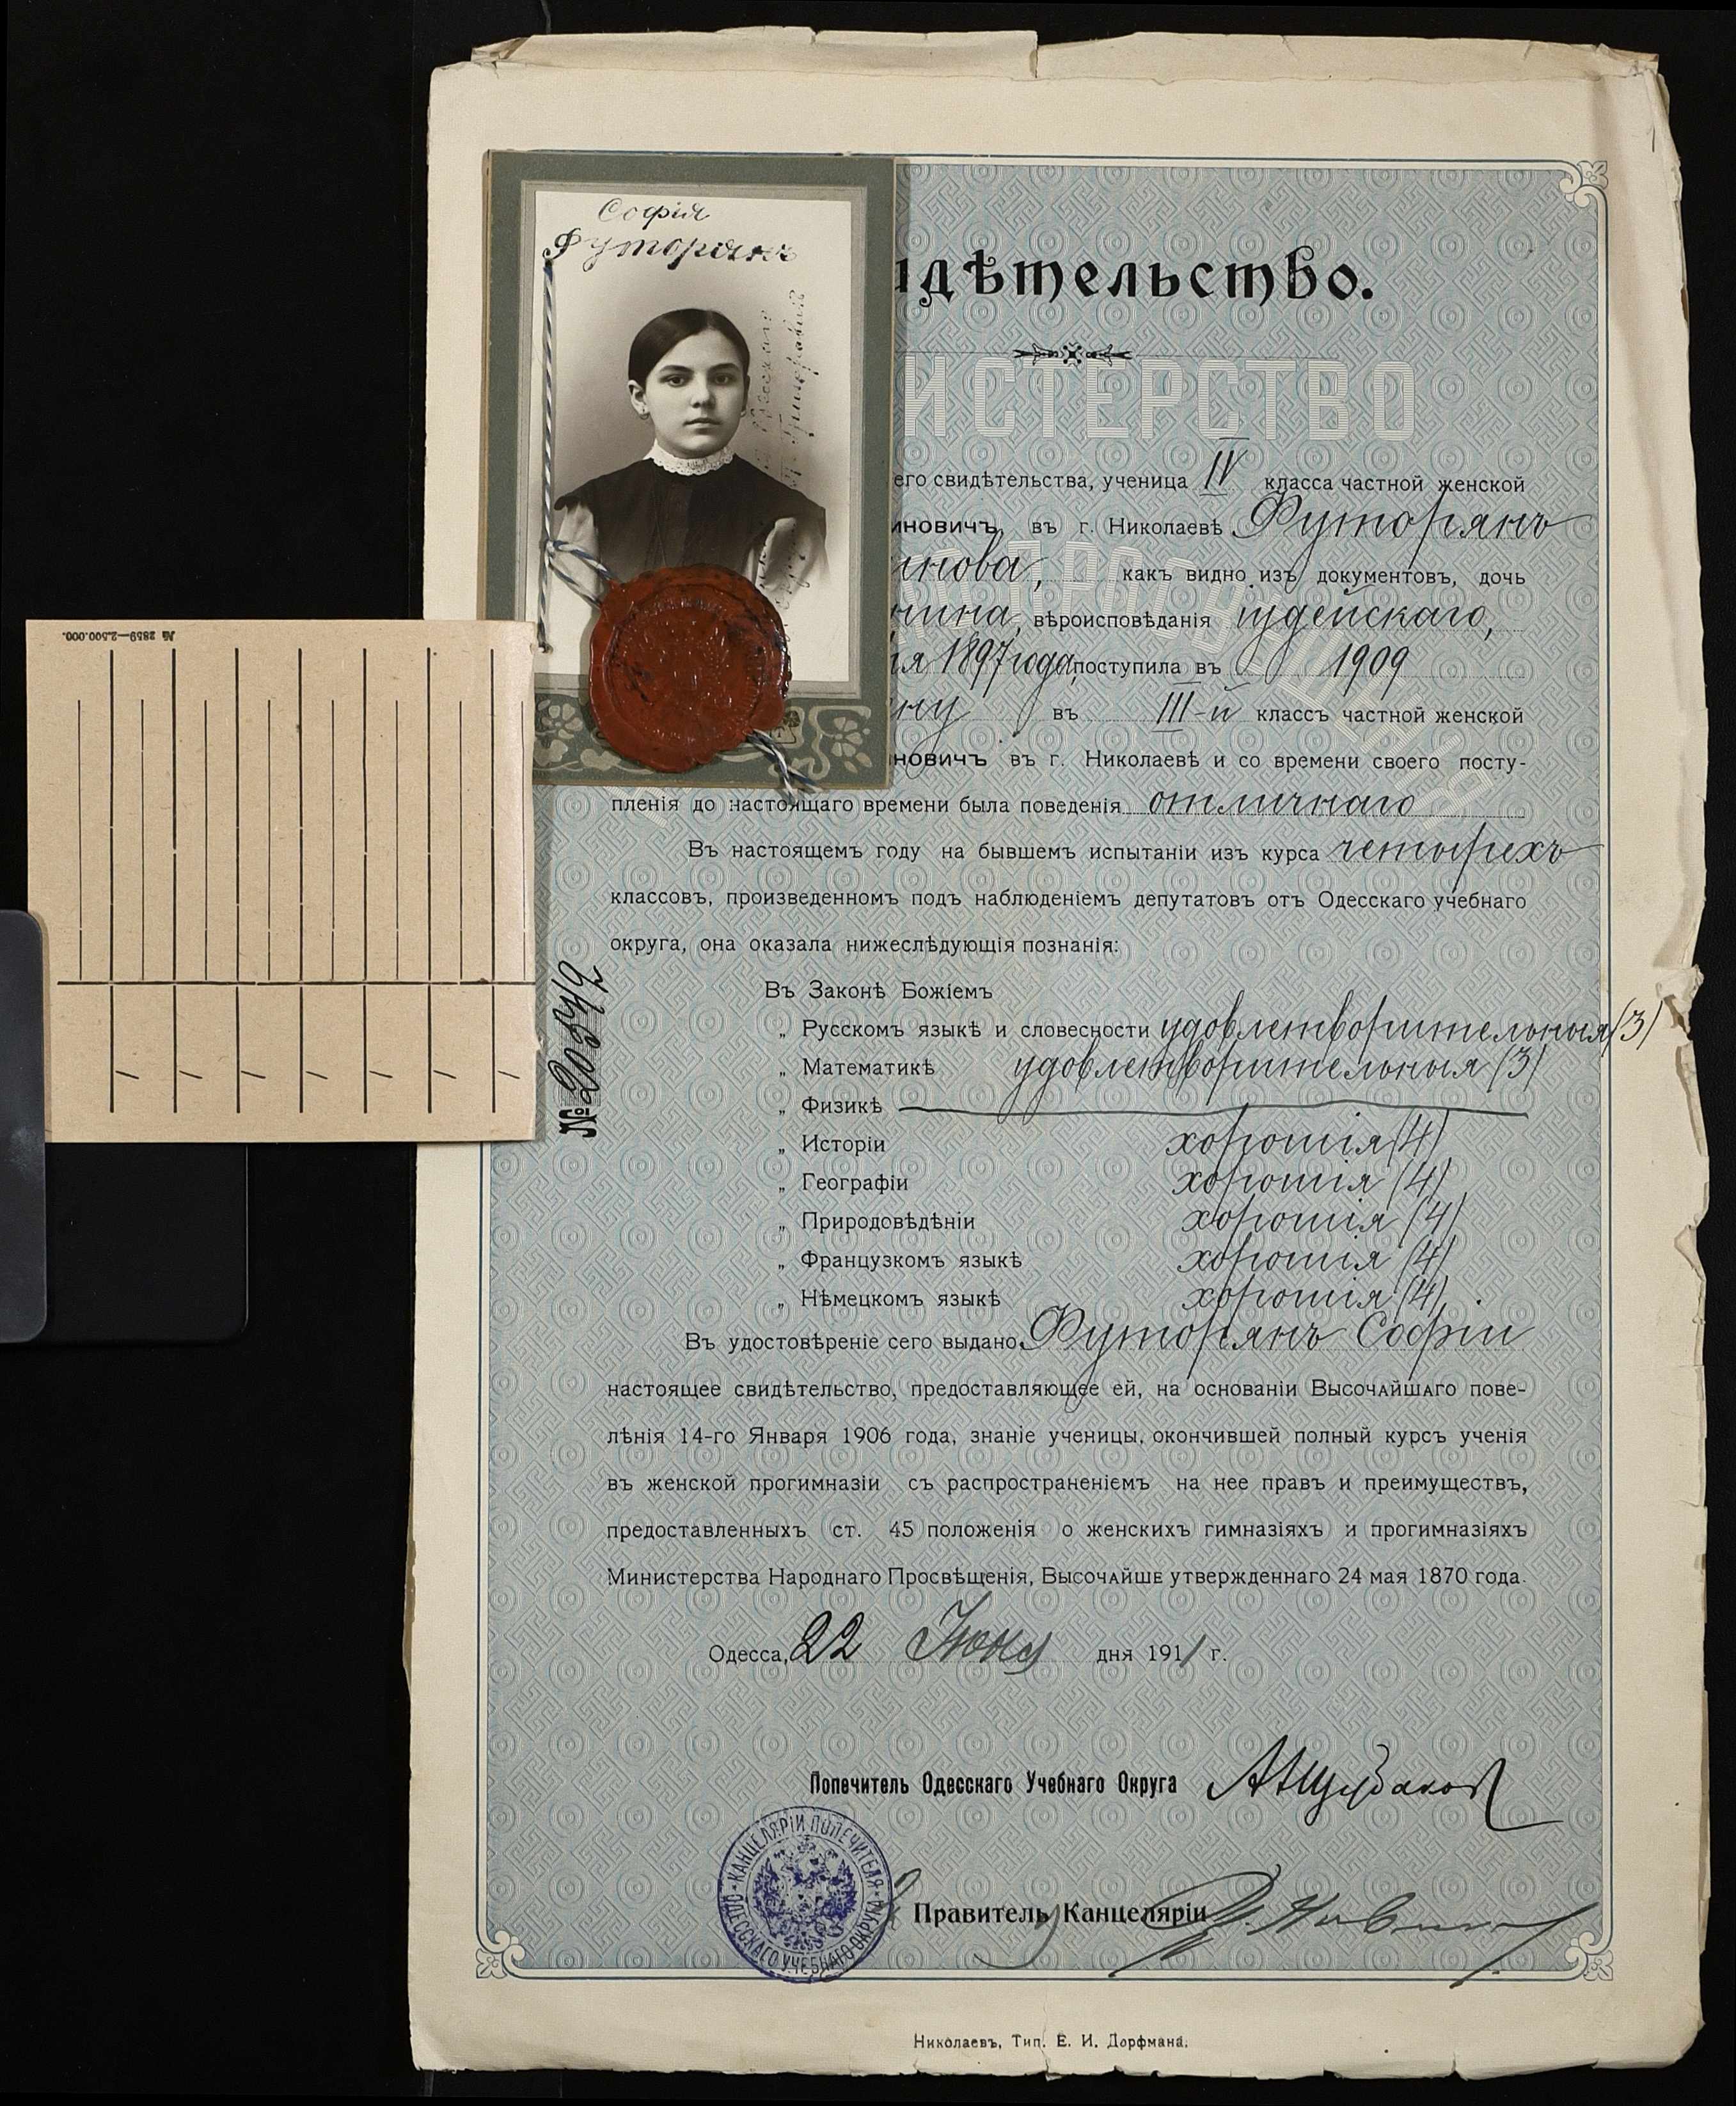 Софія
Футорянъ
идѣтельство.
ИСТЕРСТВО
его свидѣтельства, ученица IV класса частной женской
иновичъ въ г. Николаевѣ Футорянъ
инова, какъ видно изъ документовъ, дочь
нина, вѣроисповѣданія іудейскаго,
ія 1897 года, поступила въ 1909
ну въ III-й классъ частной женской
новичъ въ г. Николаевѣ и со времени своего посту-
пленія до настоящаго времени была поведенія отличнаго
Въ настоящемъ году на бывшемъ испытаніи изъ курса четырехъ
классовъ, произведенномъ подъ наблюденіемъ депутатовъ отъ Одесскаго учебнаго
округа, она оказала нижеслѣдующія познанія:
Въ Законѣ Божіемъ
„ Русскомъ языкѣ и словесности удовлетворительныя (3)
„ Математикѣ удовлетворительныя (3)
„ Физикѣ
„ Исторіи хорошія (4)
„ Географіи хорошія (4)
„ Природовѣдѣніи хорошія (4)
„ Французкомъ языкѣ хорошія (4)
„ Нѣмецкомъ языкѣ хорошія (4).
Въ удостовѣреніе сего выдано Футорянъ Софіи
настоящее свидѣтельство, предоставляющее ей, на основаніи Высочайшаго пове-
лѣнія 14-го Января 1906 года, знаніе ученицы, окончившей полный курсъ ученія
въ женской прогимназіи съ распространеніемъ на нее правъ и преимуществъ,
предоставленныхъ ст. 45 положенія о женскихъ гимназіяхъ и прогимназіяхъ
Министерства Народнаго Просвѣщенія, Высочайше утвержденнаго 24 мая 1870 года.
Одесса, 22 Іюня дня 1911 г.
Попечитель Одесскаго Учебнаго Округа
Правитель Канцеляріи
КАНЦЕЛЯРІИ ПОПЕЧИТЕЛЯ ОДЕССКАГО УЧЕБНАГО ОКРУГА
Николаевъ, Тип. Е. И. Дорфмана.
№ 20542
№ 2859—2.500.000.